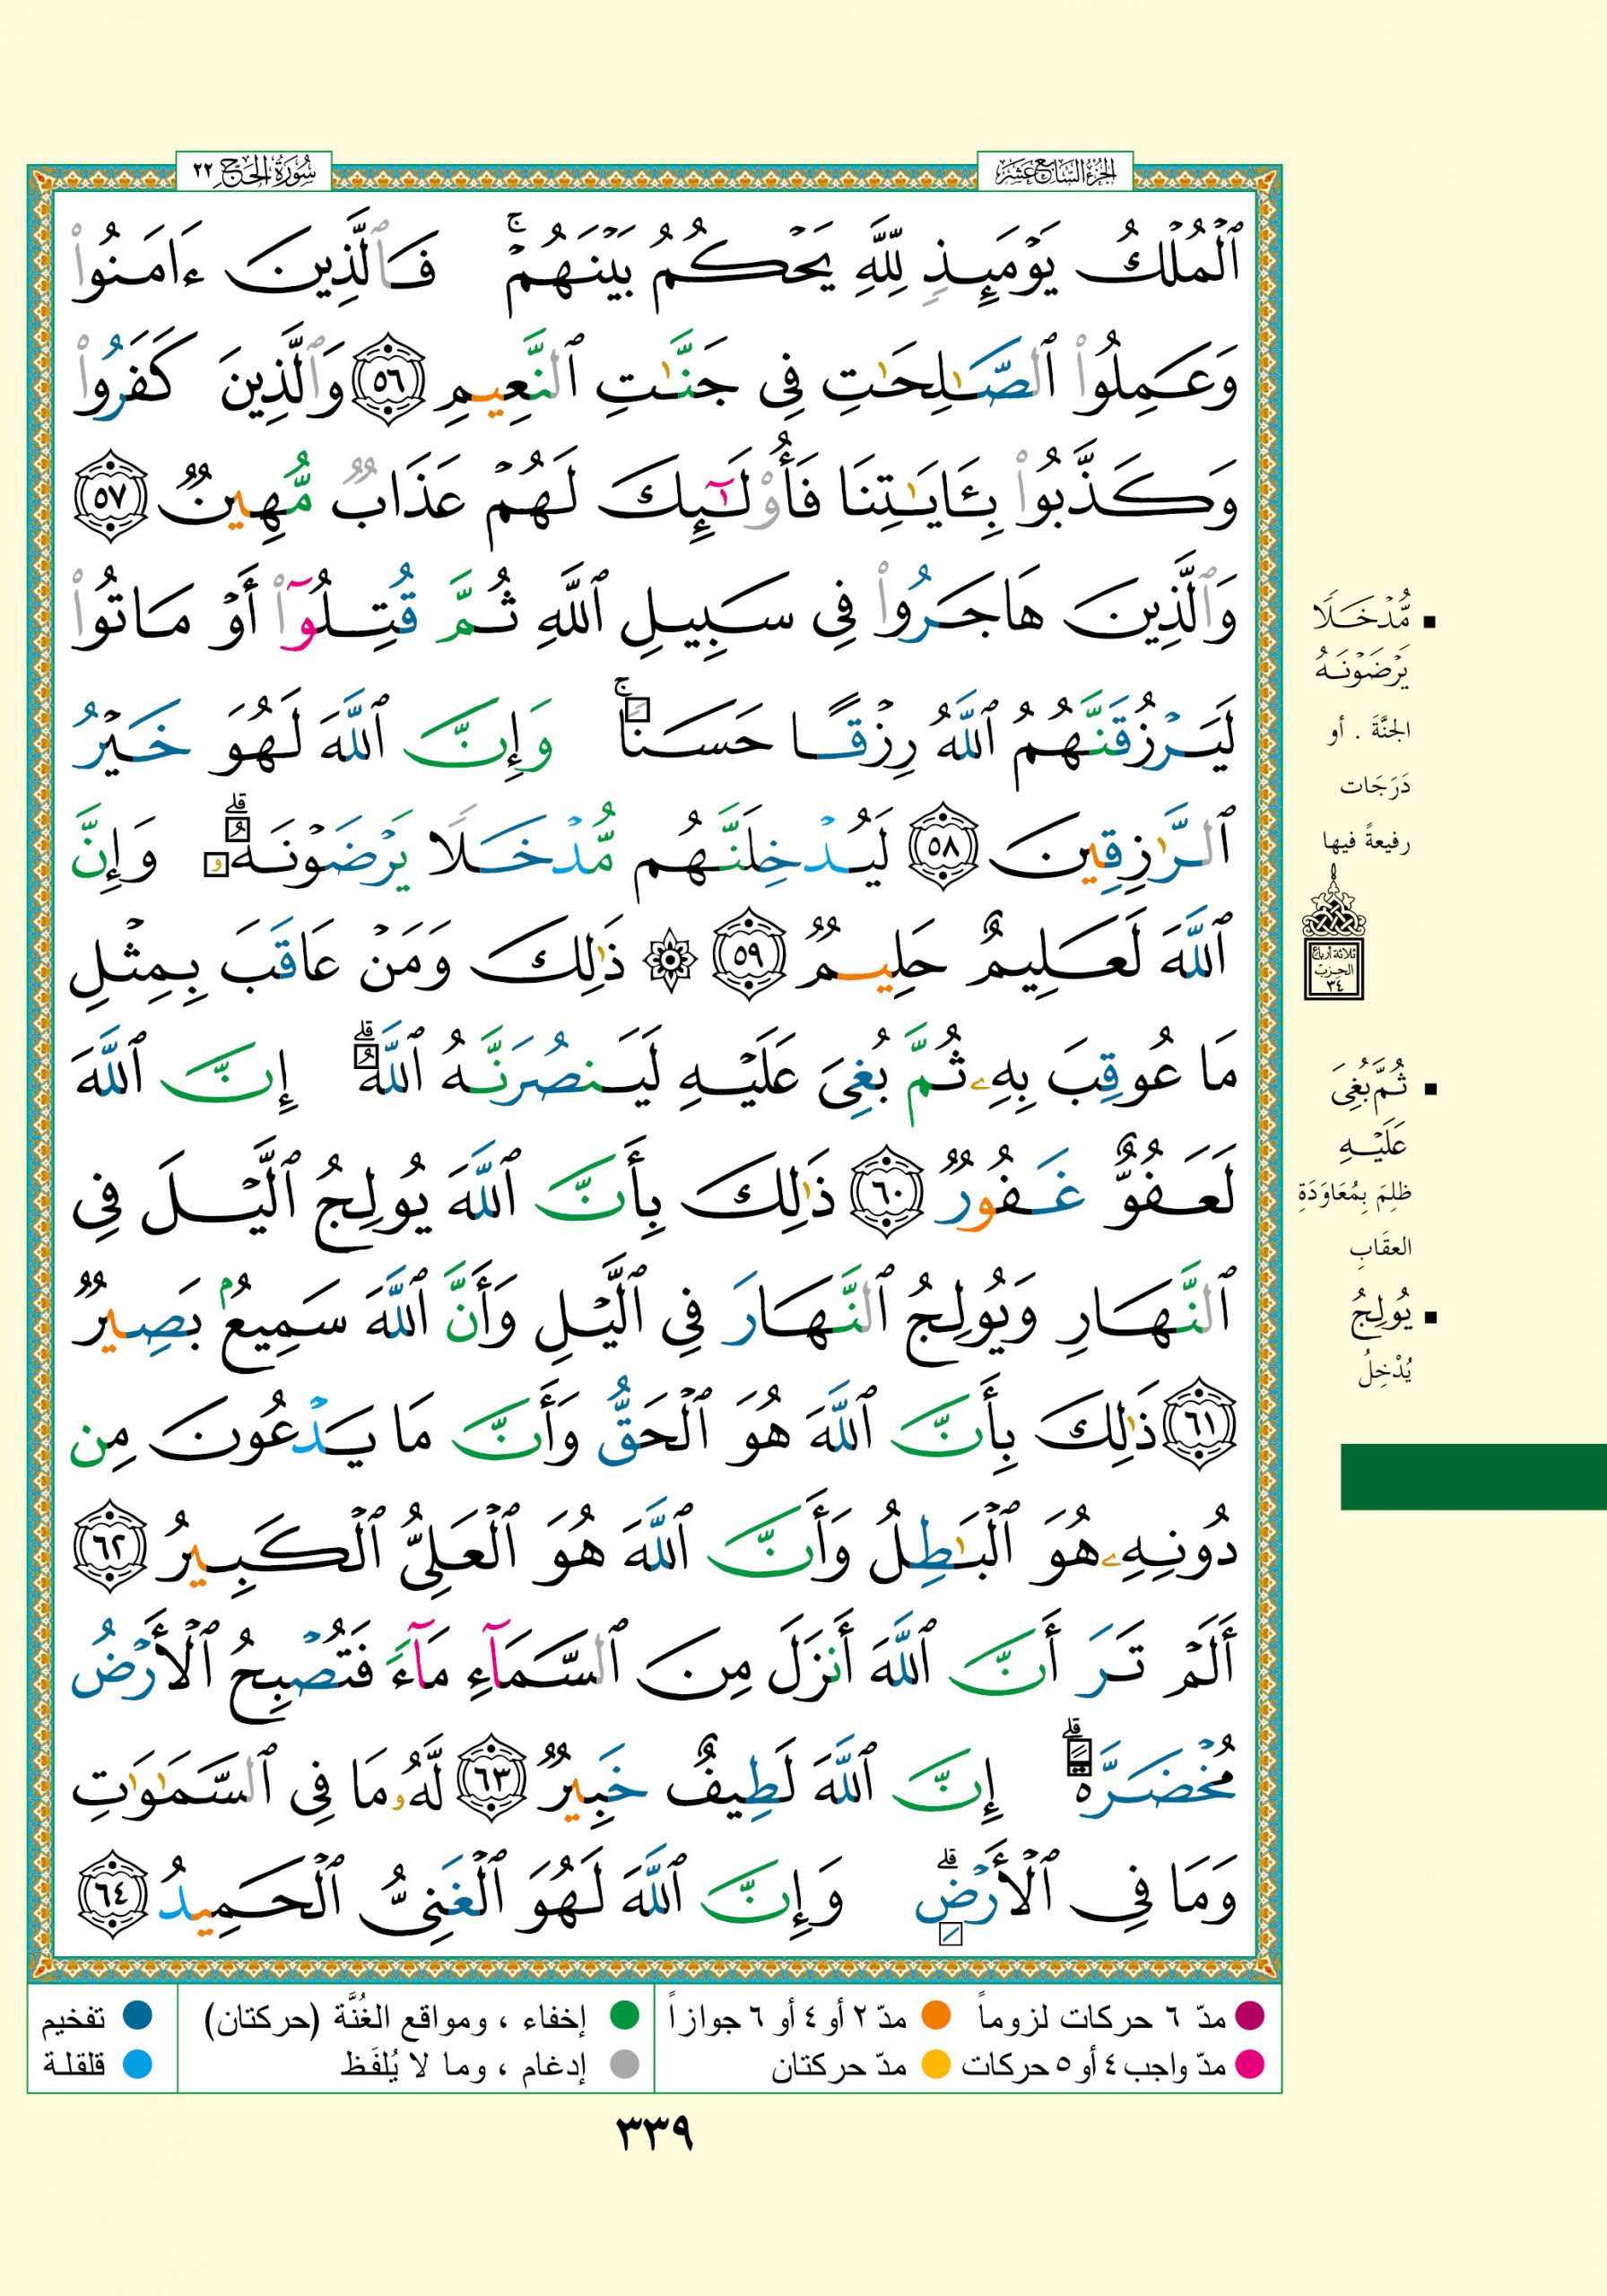 الجزء السابع عشر
سورة الحج ٢٢
ٱلۡمُلۡكُ يَوۡمَئِذٖ لِّلَّهِ يَحۡكُمُ بَيۡنَهُمۡۚ فَٱلَّذِينَ ءَامَنُواْ
وَعَمِلُواْ ٱلصَّٰلِحَٰتِ فِي جَنَّٰتِ ٱلنَّعِيمِ ٥٦ وَٱلَّذِينَ كَفَرُواْ
وَكَذَّبُواْ بِـَٔايَٰتِنَا فَأُوْلَٰٓئِكَ لَهُمۡ عَذَابٞ مُّهِينٞ ٥٧
وَٱلَّذِينَ هَاجَرُواْ فِي سَبِيلِ ٱللَّهِ ثُمَّ قُتِلُوٓاْ أَوۡ مَاتُواْ
لَيَرۡزُقَنَّهُمُ ٱللَّهُ رِزۡقًا حَسَنٗاۚ وَإِنَّ ٱللَّهَ لَهُوَ خَيۡرُ
ٱلرَّٰزِقِينَ ٥٨ لَيُدۡخِلَنَّهُم مُّدۡخَلٗا يَرۡضَوۡنَهُۥۚ وَإِنَّ
ٱللَّهَ لَعَلِيمٌ حَلِيمٞ ٥٩ ۞ ذَٰلِكَ وَمَنۡ عَاقَبَ بِمِثۡلِ
مَا عُوقِبَ بِهِۦ ثُمَّ بُغِيَ عَلَيۡهِ لَيَنصُرَنَّهُ ٱللَّهُۚ إِنَّ ٱللَّهَ
لَعَفُوٌّ غَفُورٞ ٦٠ ذَٰلِكَ بِأَنَّ ٱللَّهَ يُولِجُ ٱلَّيۡلَ فِي
ٱلنَّهَارِ وَيُولِجُ ٱلنَّهَارَ فِي ٱلَّيۡلِ وَأَنَّ ٱللَّهَ سَمِيعُۢ بَصِيرٞ
٦١ ذَٰلِكَ بِأَنَّ ٱللَّهَ هُوَ ٱلۡحَقُّ وَأَنَّ مَا يَدۡعُونَ مِن
دُونِهِۦ هُوَ ٱلۡبَٰطِلُ وَأَنَّ ٱللَّهَ هُوَ ٱلۡعَلِيُّ ٱلۡكَبِيرُ ٦٢
أَلَمۡ تَرَ أَنَّ ٱللَّهَ أَنزَلَ مِنَ ٱلسَّمَآءِ مَآءٗ فَتُصۡبِحُ ٱلۡأَرۡضُ
مُخۡضَرَّةًۚ إِنَّ ٱللَّهَ لَطِيفٌ خَبِيرٞ ٦٣ لَّهُۥ مَا فِي ٱلسَّمَٰوَٰتِ
وَمَا فِي ٱلۡأَرۡضِۚ وَإِنَّ ٱللَّهَ لَهُوَ ٱلۡغَنِيُّ ٱلۡحَمِيدُ ٦٤
مُّدۡخَلٗا
يَرۡضَوۡنَهُ
الجنَّةَ . أو
دَرَجَات
رفيعةً فيها
ثلاثة أرباع
الحزب
٣٤
ثُمَّ بُغِيَ
عَلَيۡهِ
ظلِمَ بِمُعَاوَدَةِ
العقَابِ
يُولِجُ
يُدْخِلُ
مدّ ٦ حركات لزوماً مدّ ٢ أو ٤ أو ٦ جوازاً إخفاء ، ومواقع الغُنَّة (حركتان) تفخيم
مدّ واجب ٤ أو ٥ حركات مدّ حركتان إدغام ، وما لا يُلفَظ قلقلة
٣٣٩